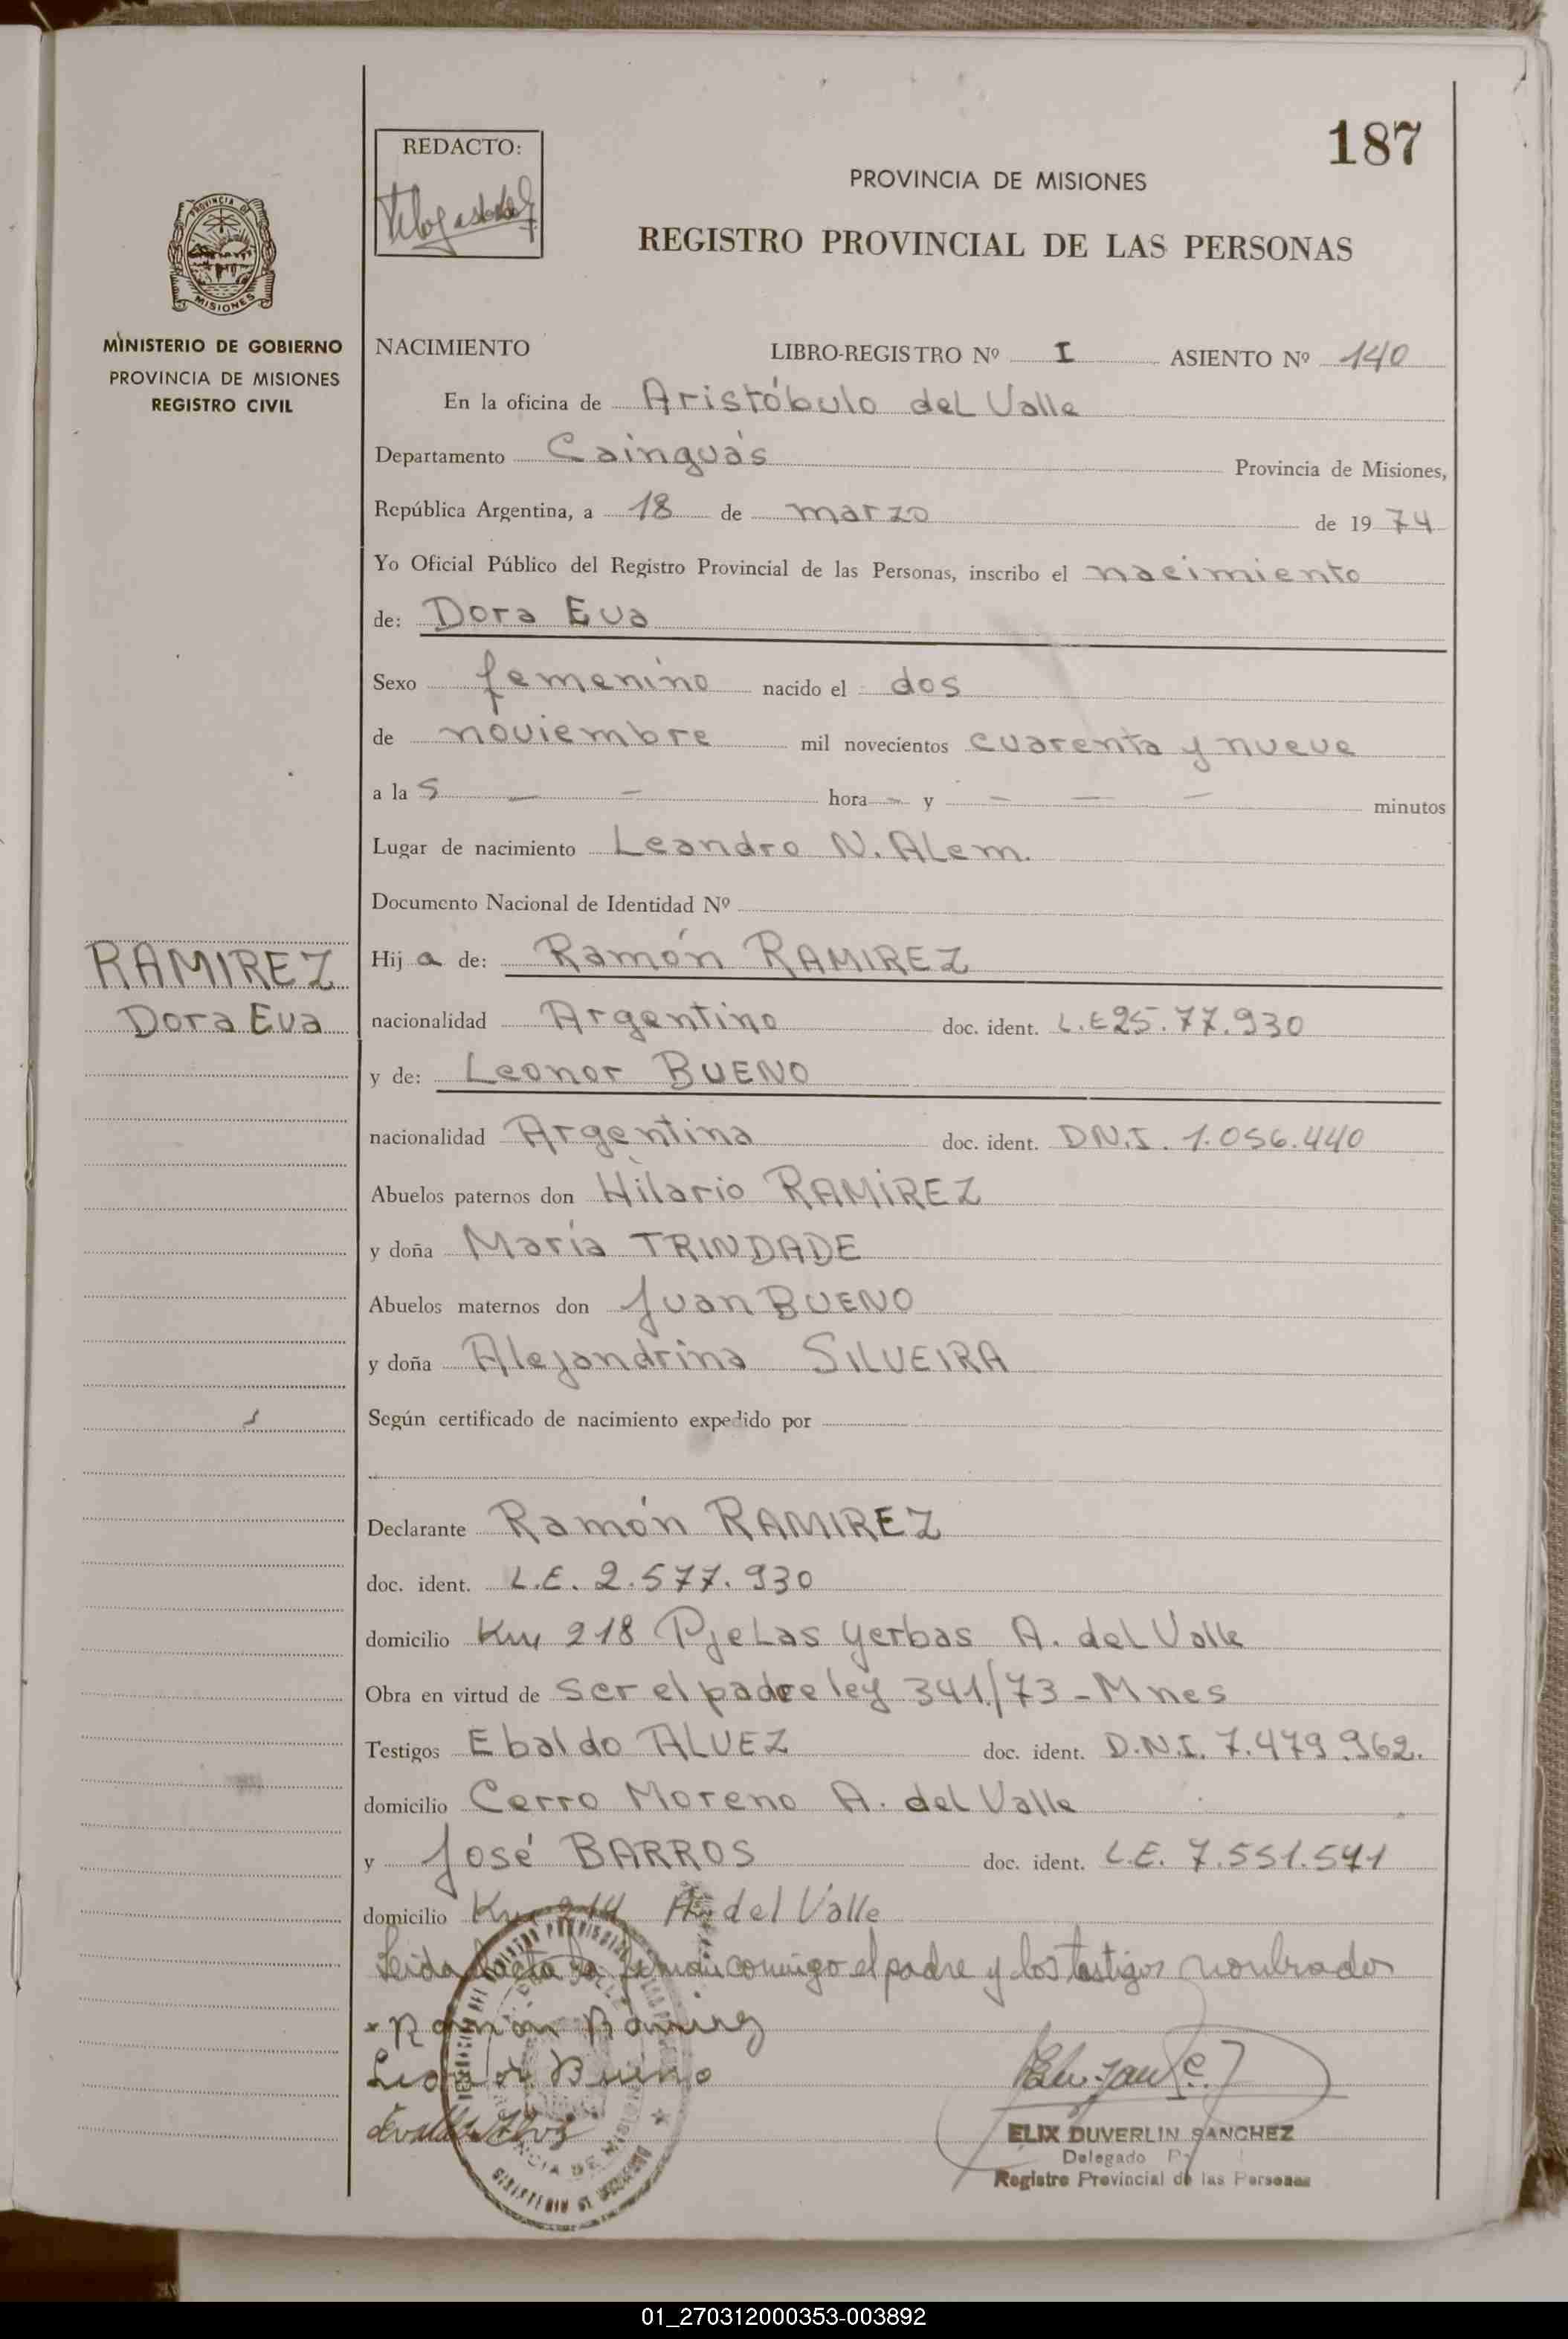 187
REDACTO:
PROVINCIA DE MISIONES
REGISTRO PROVINCIAL DE LAS PERSONAS
PROVINCIA DE
MISIONES
MINISTERIO DE GOBIERNO
PROVINCIA DE MISIONES
REGISTRO CIVIL
NACIMIENTO LIBRO-REGISTRO Nº I ASIENTO Nº 140
En la oficina de Aristóbulo del Valle
Departamento Cainguás Provincia de Misiones,
República Argentina, a 18 de marzo de 19 74
Yo Oficial Público del Registro Provincial de las Personas, inscribo el nacimiento
de: Dora Eva
Sexo femenino nacido el dos
de noviembre mil novecientos cuarenta y nueve
a la s — — hora — y — — — minutos
Lugar de nacimiento Leandro N. Alem.
Documento Nacional de Identidad Nº
RAMIREZ
Dora Eva
Hij a de: Ramón RAMIREZ
nacionalidad Argentino doc. ident. L.E 25.77.930
y de: Leonor BUENO
nacionalidad Argentina doc. ident. DN.I. 1.056.440
Abuelos paternos don Hilario RAMIREZ
y doña María TRINDADE
Abuelos maternos don Juan BUENO
y doña Alejandrina SILVEIRA
Según certificado de nacimiento expedido por
Declarante Ramón RAMIREZ
doc. ident. L.E. 2.577.930
domicilio Km 218 Pje Las Yerbas A. del Valle
Obra en virtud de ser el padre ley 341/73 - Mnes
Testigos Ebaldo ALVEZ doc. ident. D.N.I. 7.479.962.
domicilio Cerro Moreno A. del Valle
y José BARROS doc. ident. L.E. 7.551.541
domicilio Km A. del Valle
Leida el acta la firman conmigo el padre y los testigos nombrados
Ramon Ramirez
Leonor Bueno
ELIX DUVERLIN SANCHEZ
Delegado
Registro Provincial de las Personas
01_270312000353-003892